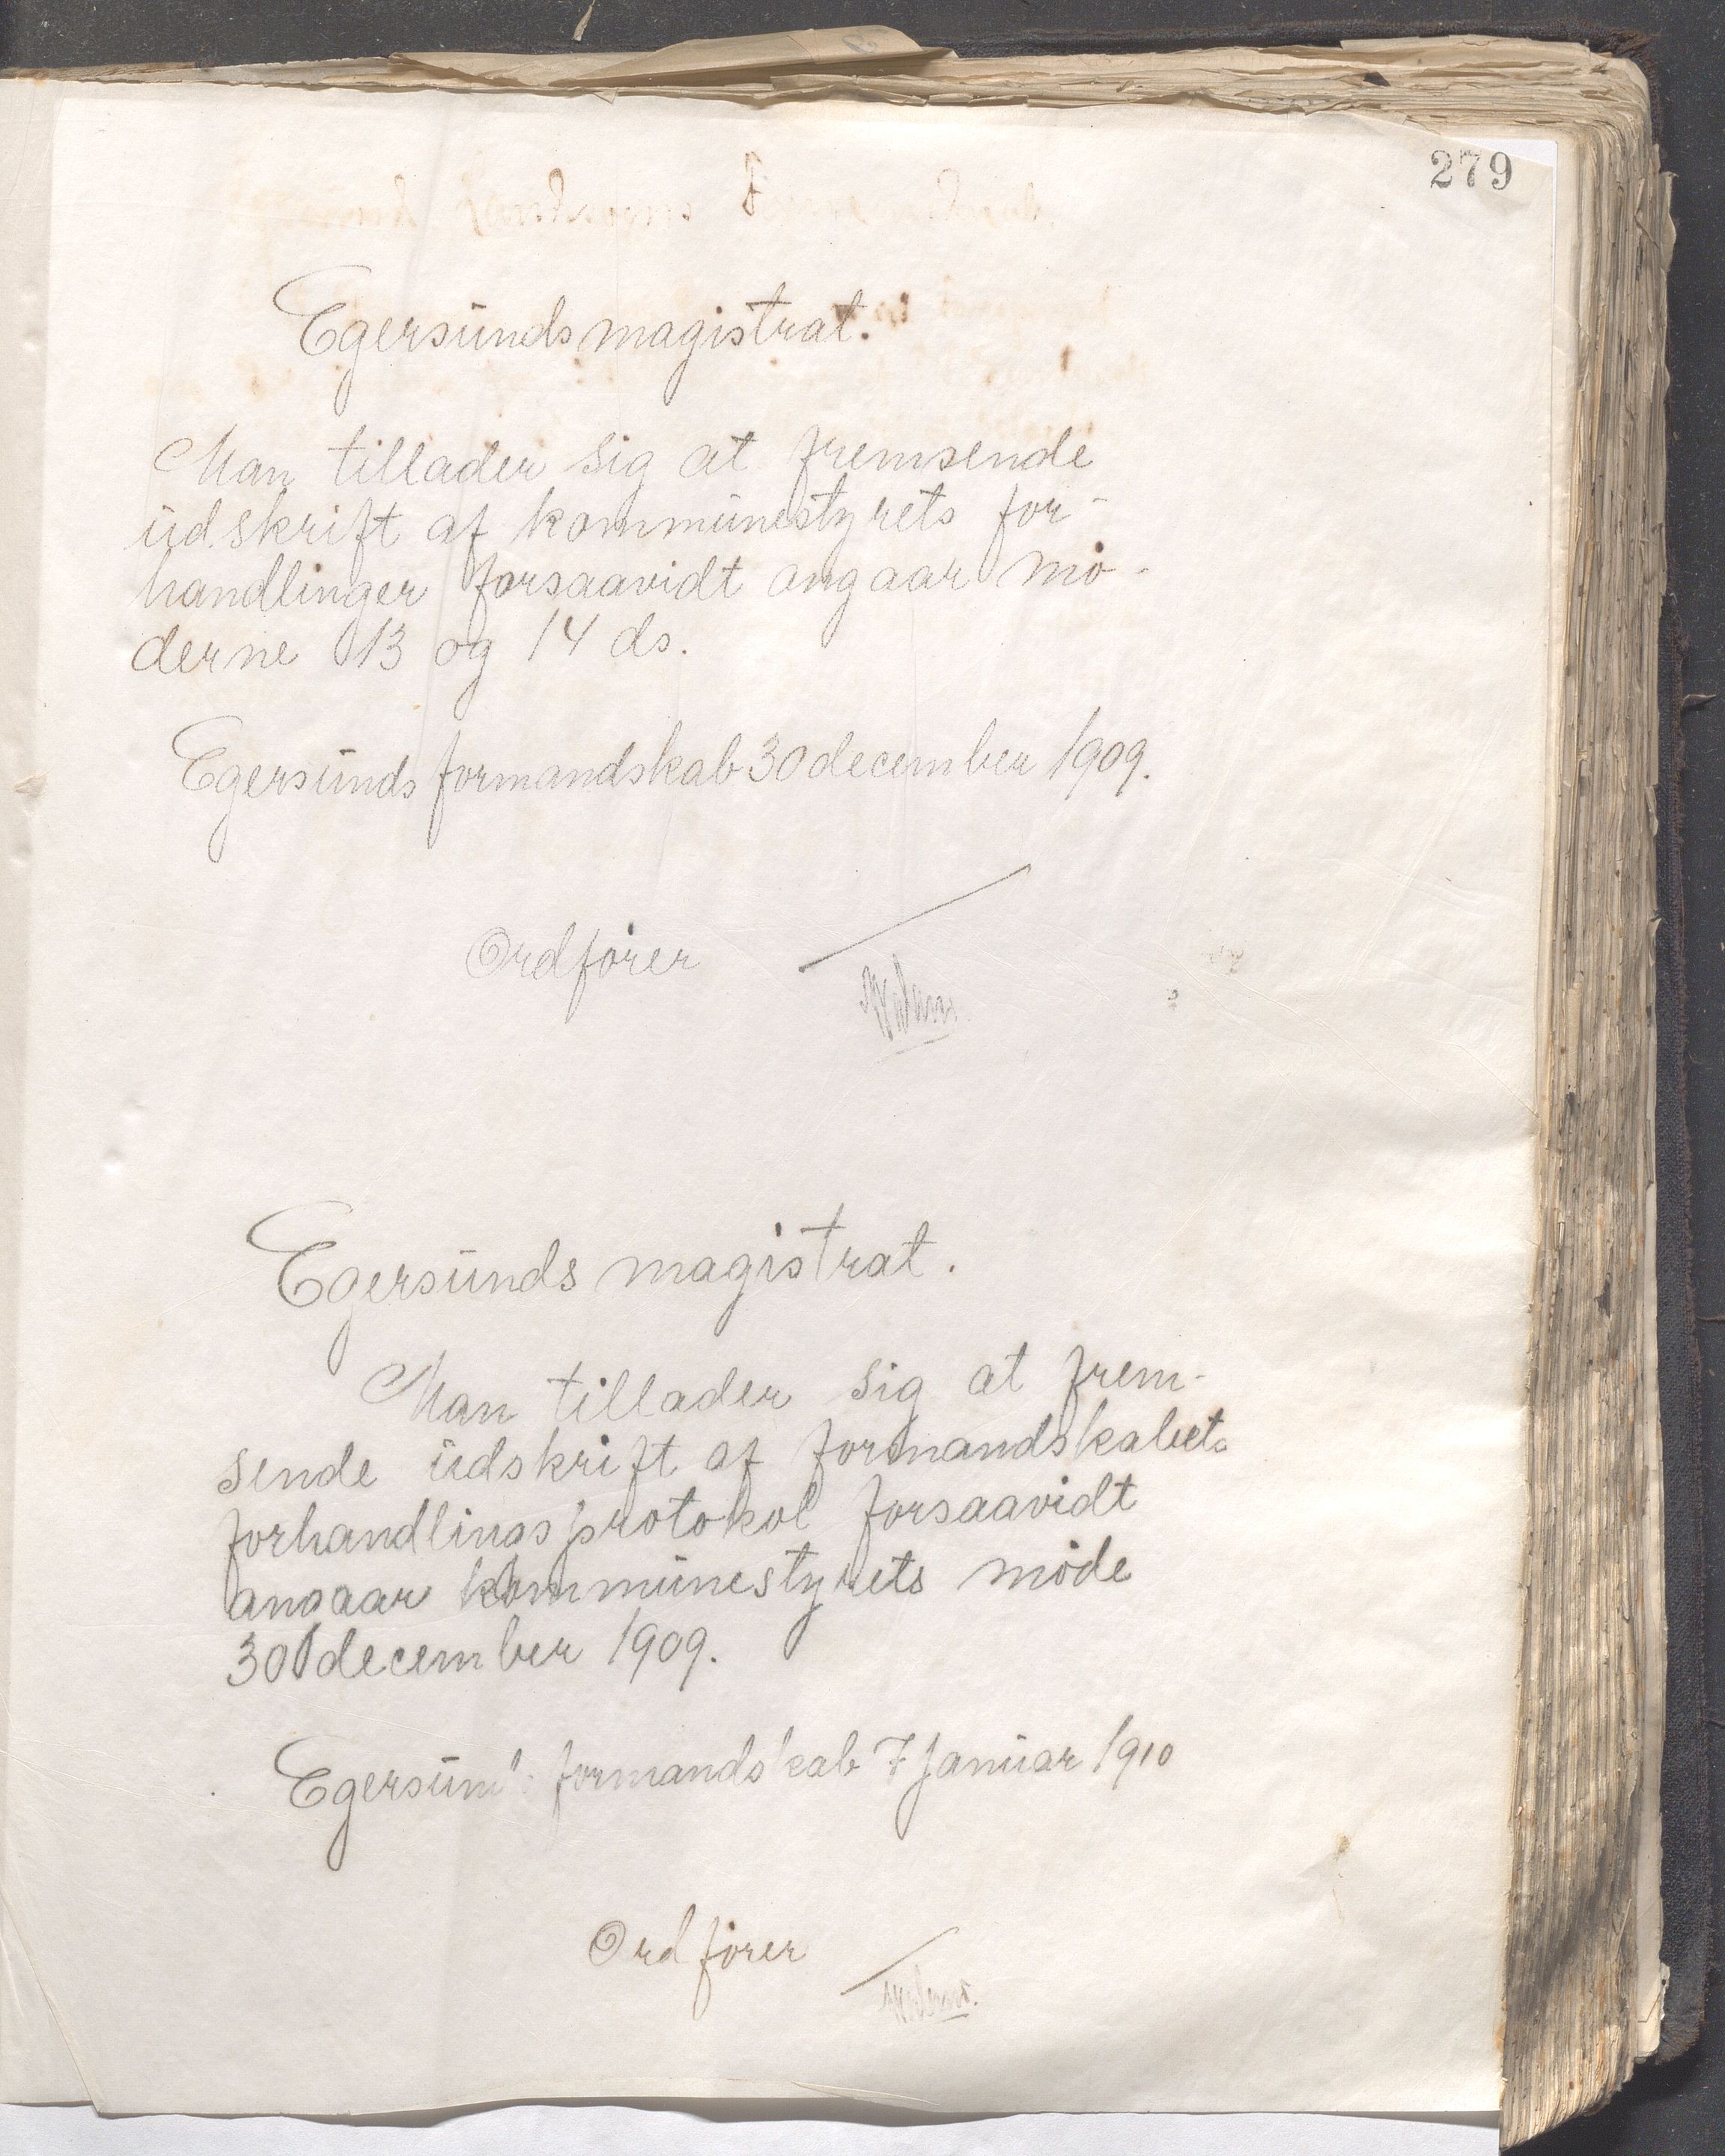 279
Egersunds magistrat.
Man tillader sig at fremsende
udskrift af kommunestyrets for-
handlinger forsaavidt angaar mö-
derne 13 og 14 ds.
Egersunds formandskab 30 december 1909.
Ordförer
Egersunds magistrat.
Man tillader sig at frem-
sende udskrift af formandskabets
forhandlingsprotokol forsaavidt
angaar kommunestyrets möde
30 december 1909.
Egersunds formandskab 7 januar 1910
Ordförer